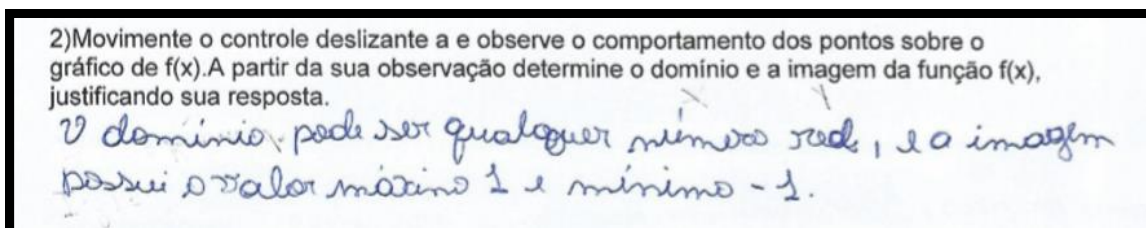 2)Movimente o controle deslizante a e observe o comportamento dos pontos sobre o
gráfico de f(x).A partir da sua observação determine o domínio e a imagem da função f(x),
justificando sua resposta.
O domínio pode ser qualquer número real, e a imagem
possui o valor máximo 1 e mínimo -1.